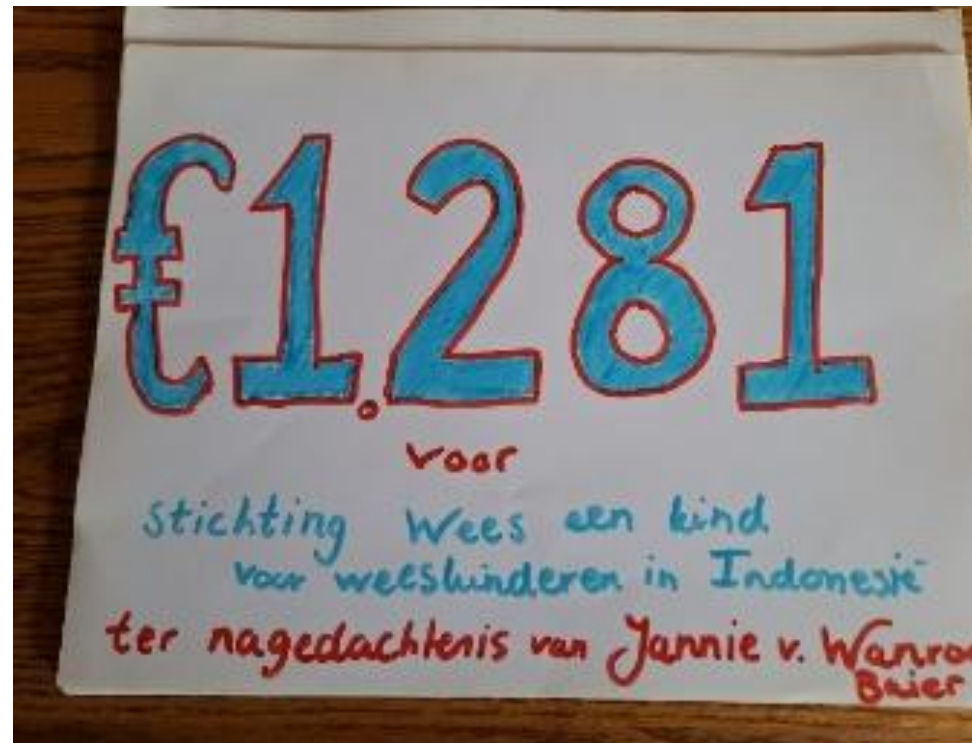 €1.281
voor
stichting Wees een kind
voor weeskinderen in Indonesië
ter nagedachtenis van Jannie v.